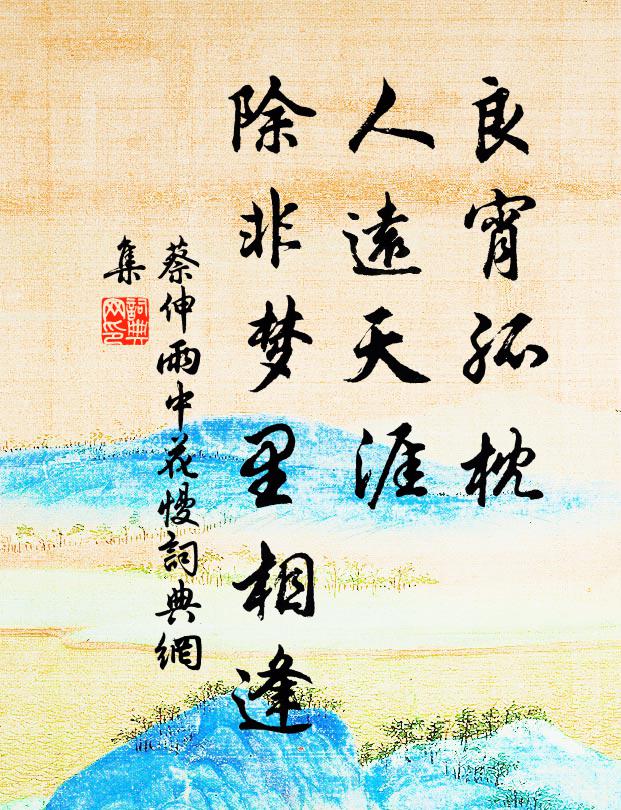 良宵孤枕
人遠天涯
除非梦里相逢
蔡伸雨中花慢詞典網
集
詞典
网印